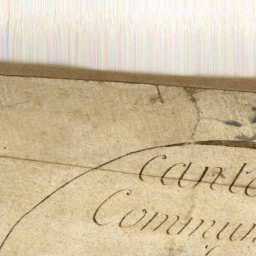 cante
Commun